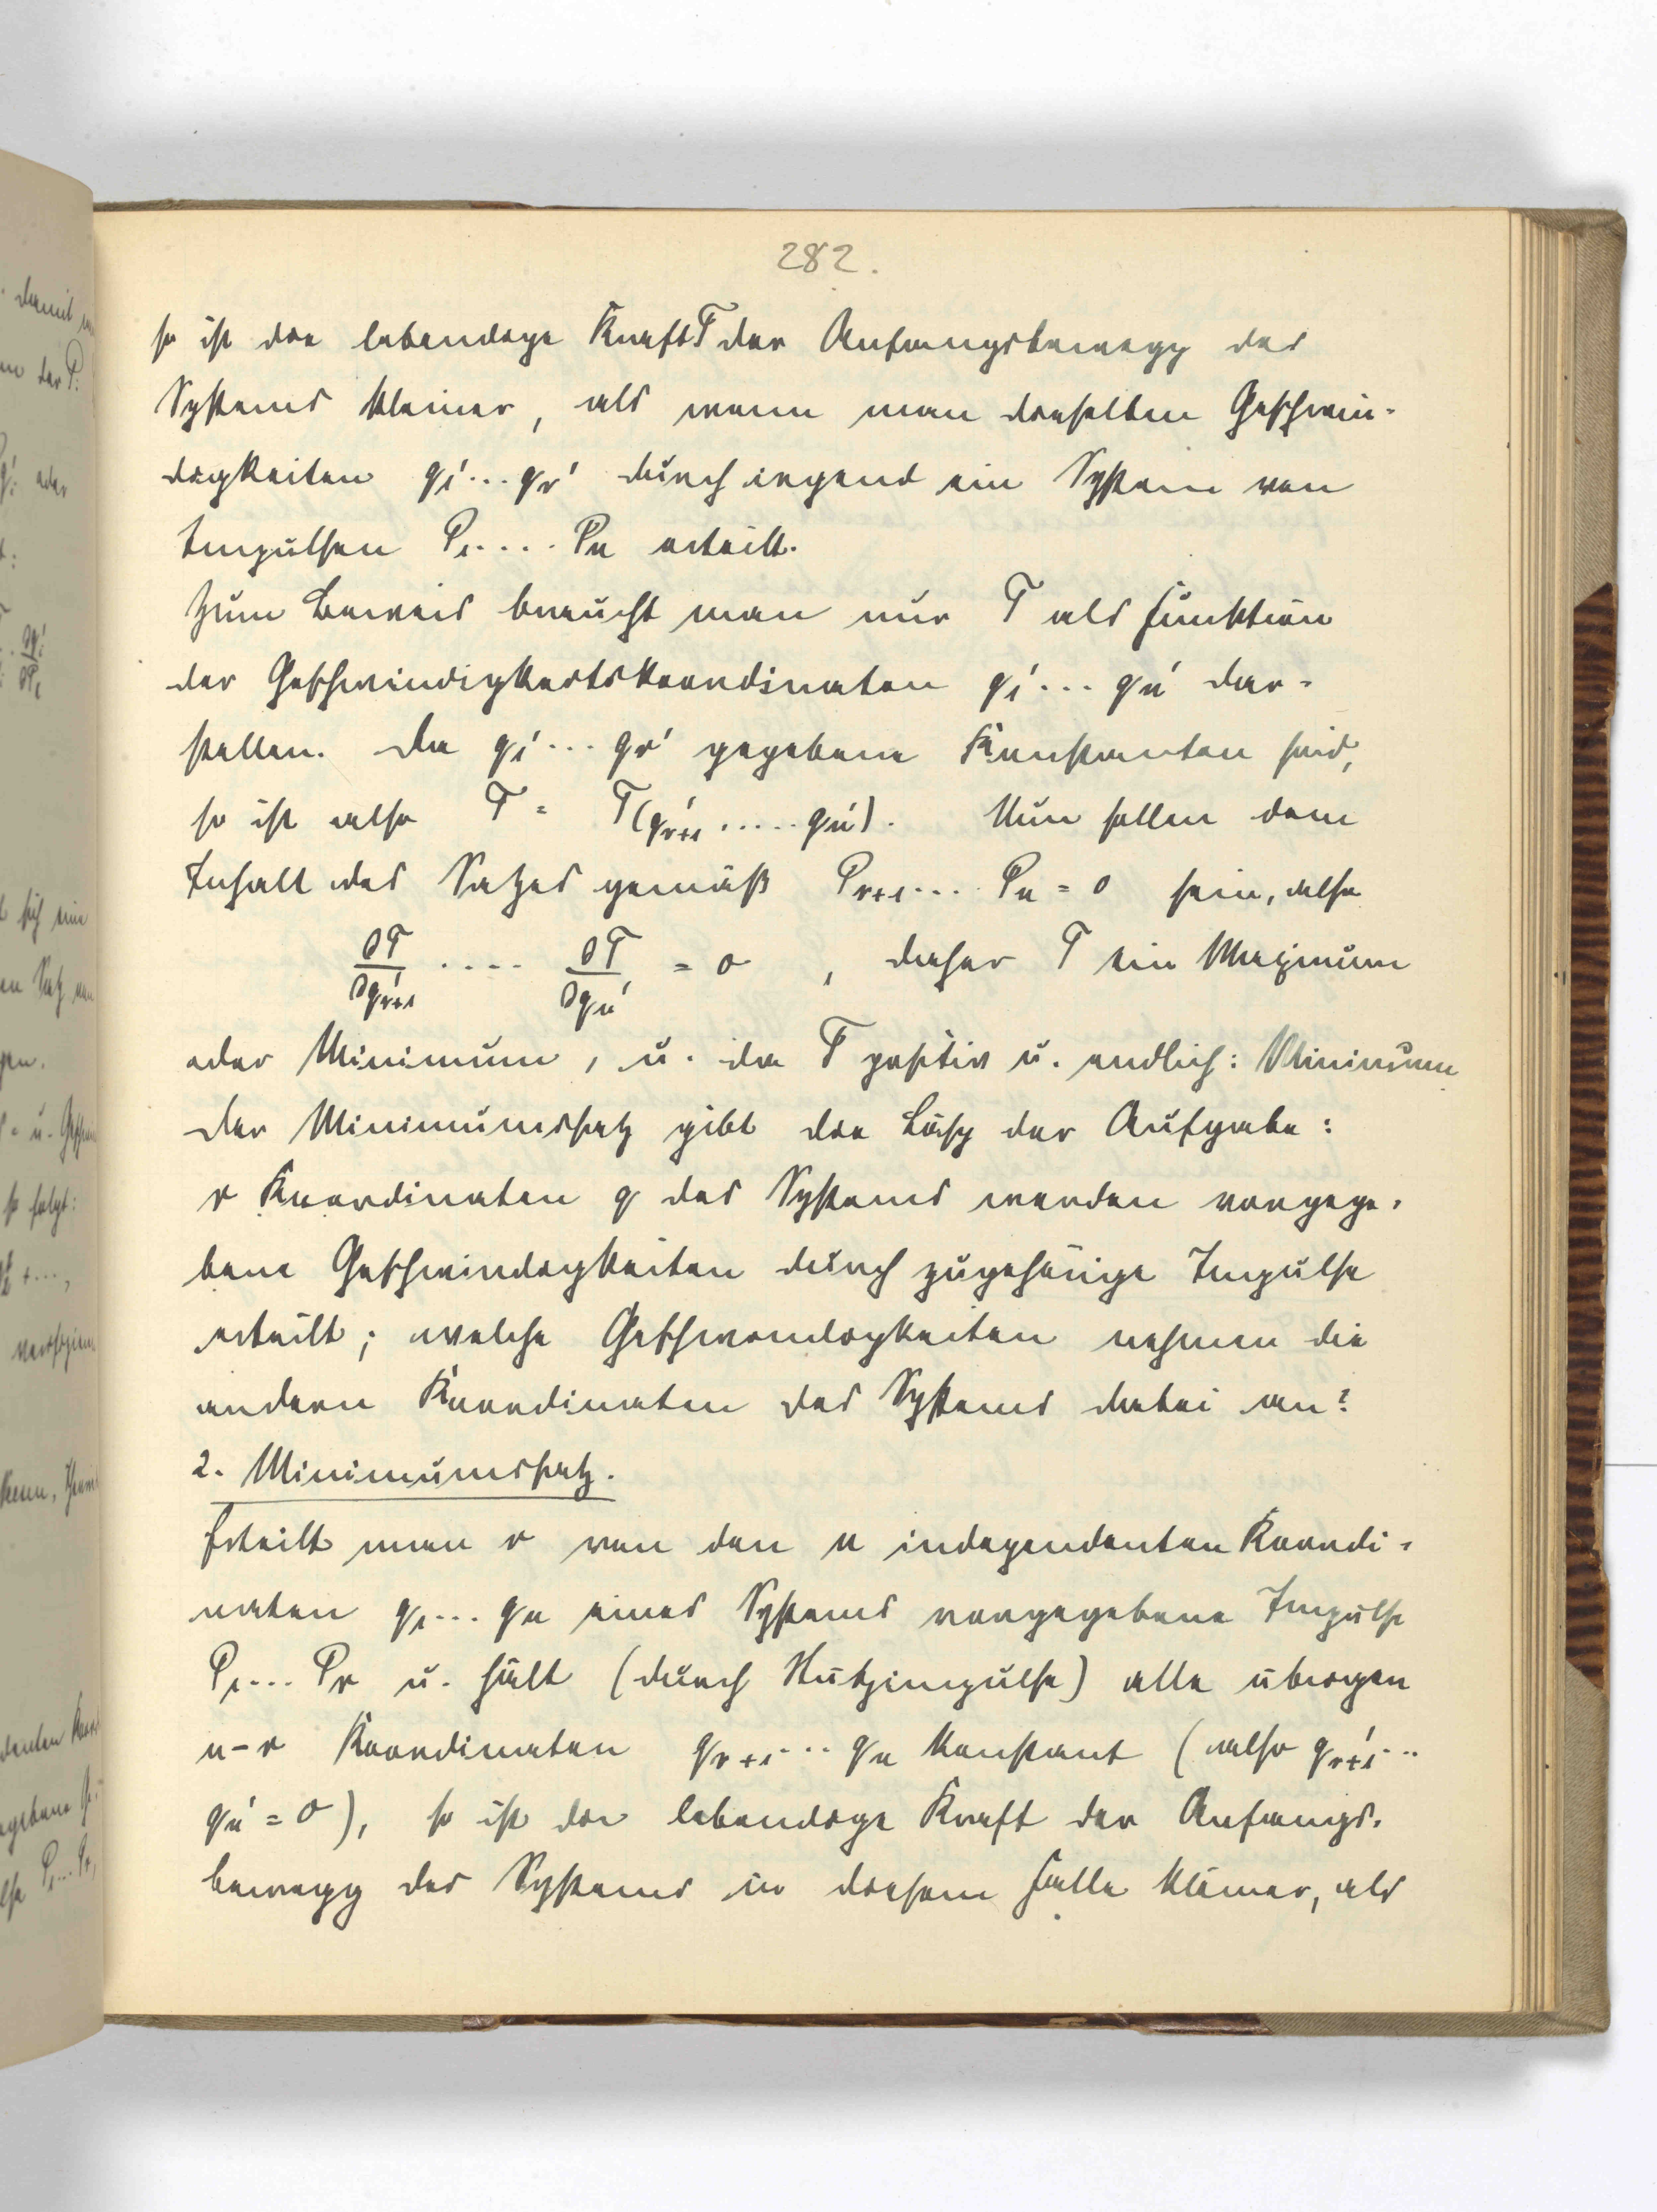 282.
so ist die lebendige Kraft T der Anfangsbewegg des
Systems kleiner, als wenn man dieselben Geschwin-
digkeiten q₁'...qᵣ' durch irgend ein System von
Impulsen P₁....Pₙ erteilt.
Zum Beweis braucht man nur T als Funktion
der Geschwindigkeitskoordinaten q₁'...qₙ' dar-
stellen. Da q₁'...qᵣ' gegebene Konstanten sind,
so ist also T = T(qᵣ₊₁'.....qₙ'). Nun sollen dem
Inhalt des Satzes gemäß Pᵣ₊₁...Pₙ = 0 sein, also
∂T/∂qᵣ₊₁' .... ∂T/∂qₙ' = 0, daher T ein Maximum
oder Minimum, u. da T positiv u. endlich: Minimum
Der Minimumssatz gibt die Lösg der Aufgabe:
r Koordinaten q des Systems werden vorgege-
bene Geschwindigkeiten durch zugehörige Impulse
erteilt; welche Geschwindigkeiten nehmen die
andern Koordinaten des Systems dabei an?
2. Minimumssatz.
Erteilt man r von den n independenten Koordi-
naten q₁...qₙ eines Systems vorgegebene Impulse
P₁...Pᵣ u. hält (durch Stützimpulse) alle übrigen
n-r Koordinaten qᵣ₊₁...qₙ konstant (also qᵣ₊₁'...
qₙ' = 0), so ist die lebendige Kraft der Anfangs-
bewegg des Systems in diesem Falle kleiner, als